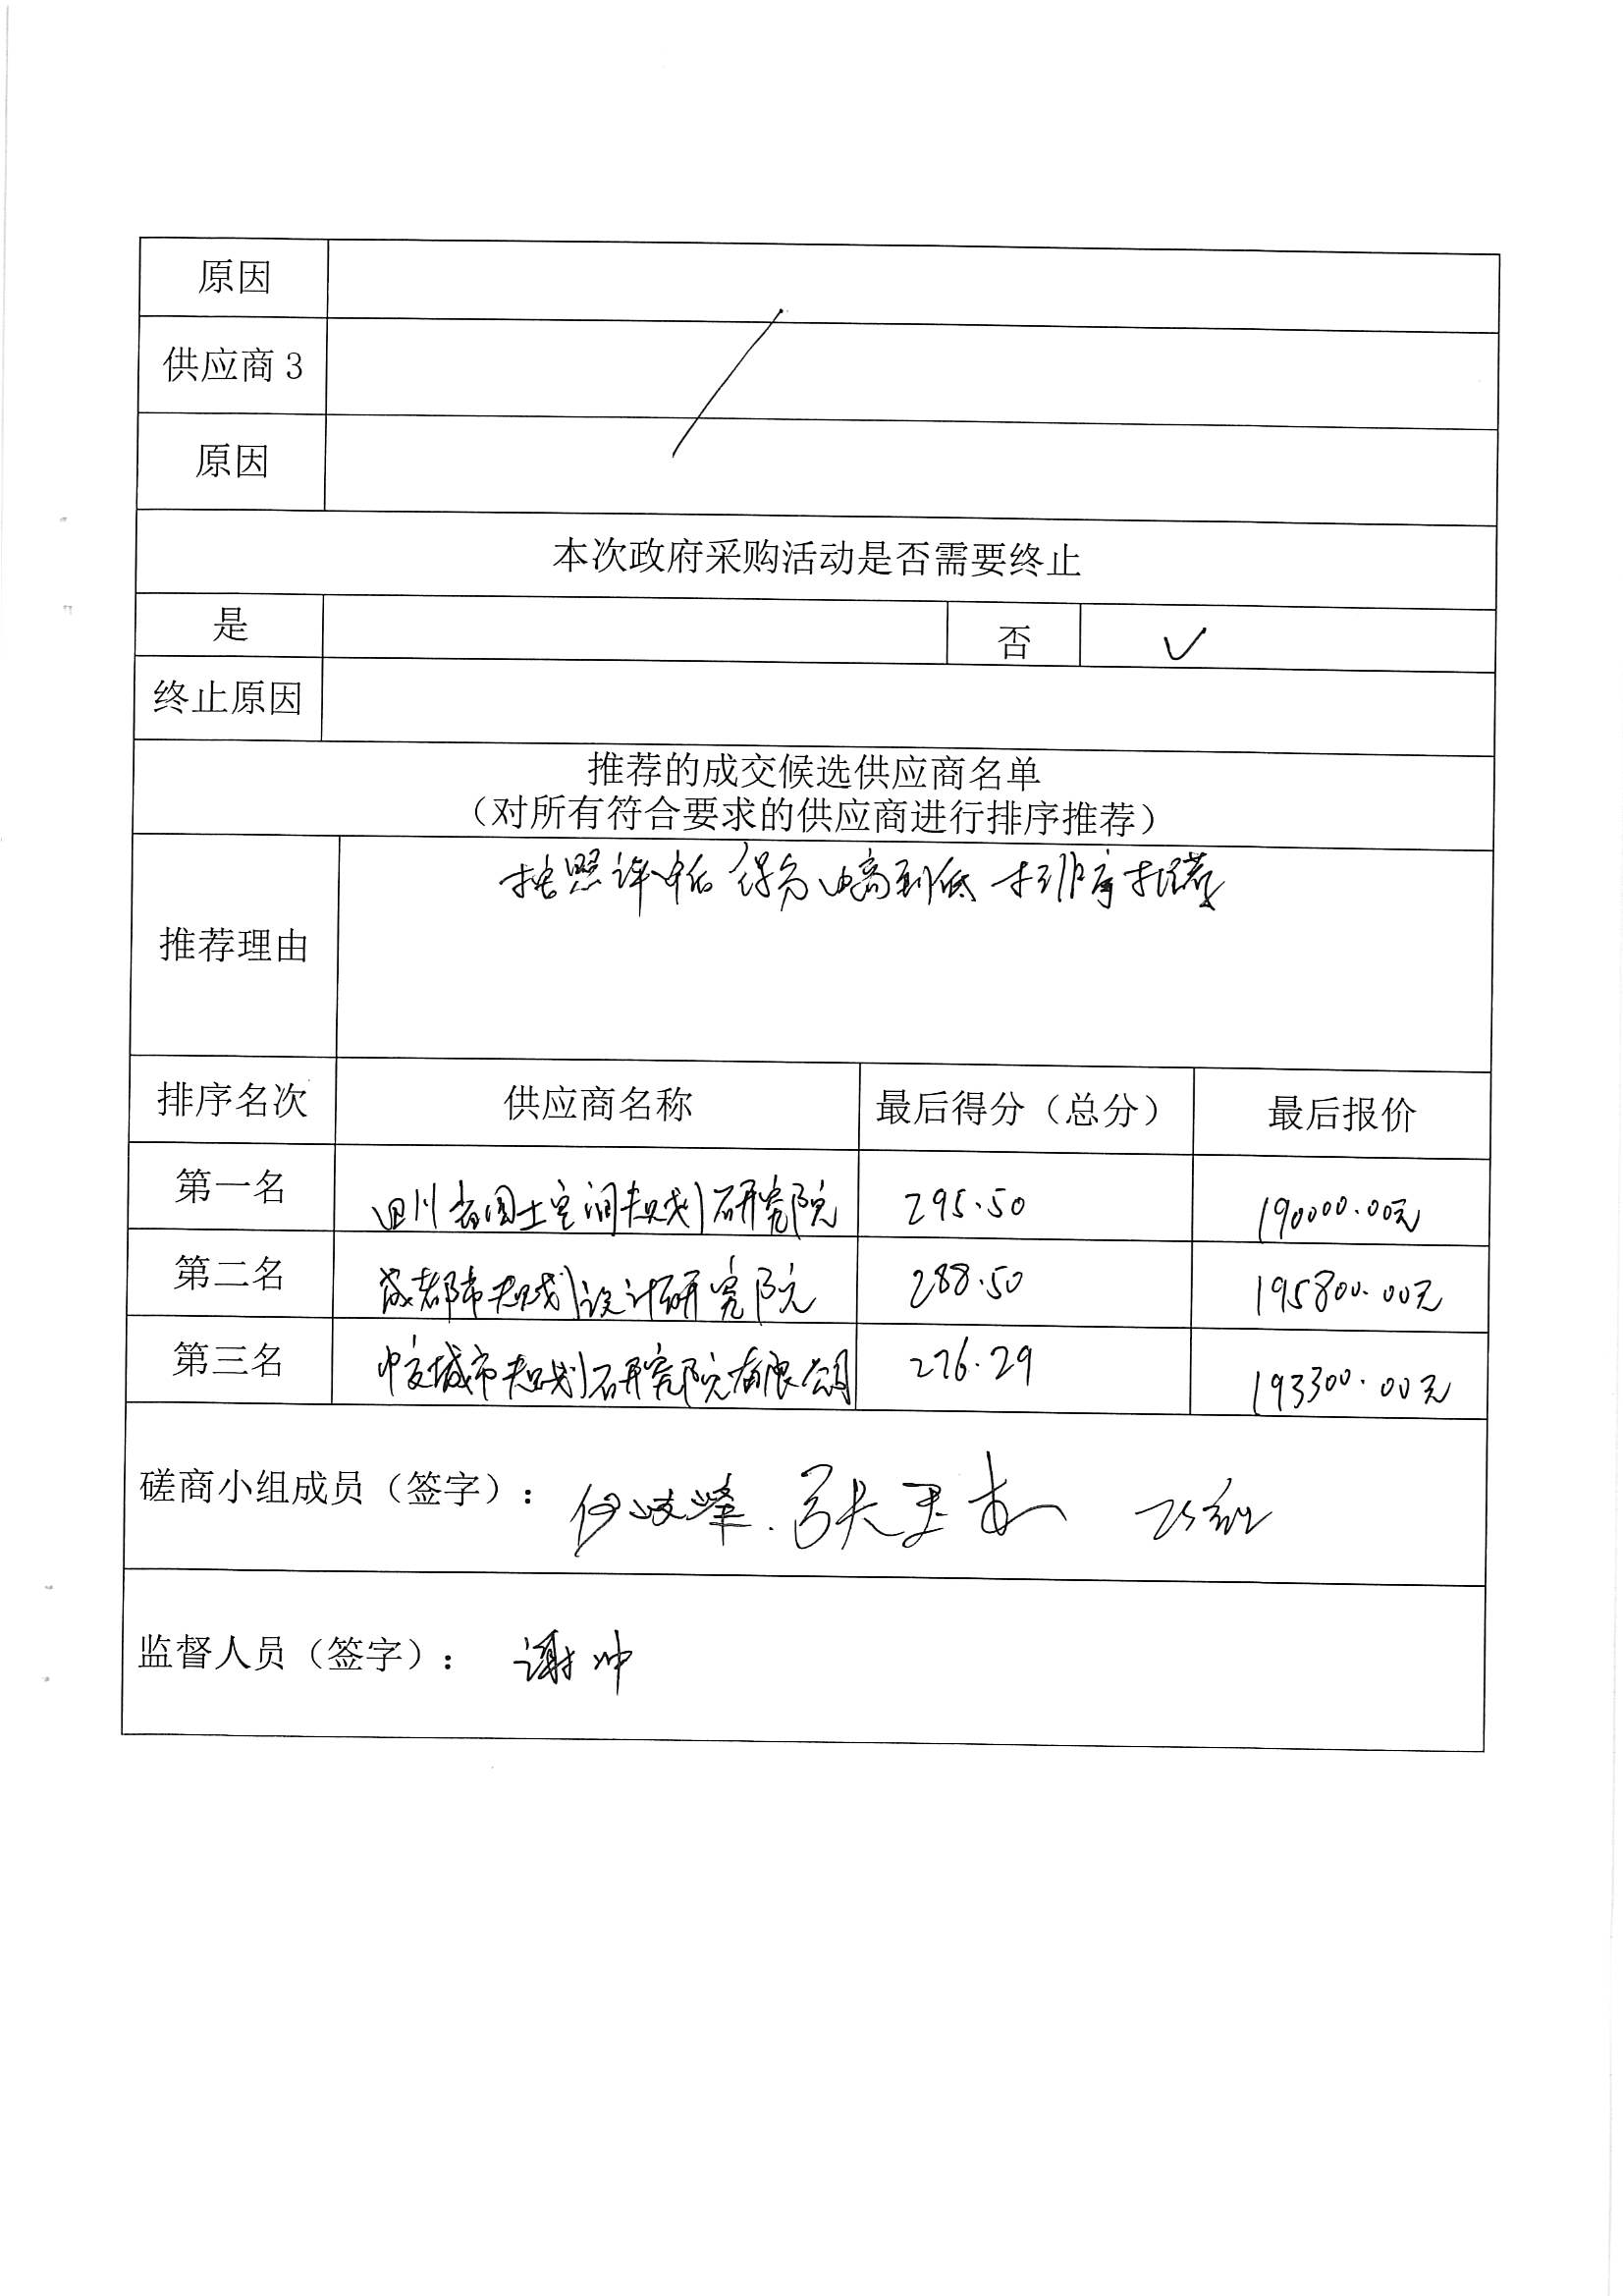 原因
供应商 3
原因
本次政府采购活动是否需要终止
是 否 ✓
终止原因
推荐的成交候选供应商名单
（对所有符合要求的供应商进行排序推荐）
按照评审后得分由高到低排序推荐
推荐理由
排序名次 供应商名称 最后得分（总分） 最后报价
第一名 四川省国土空间规划研究院 295.50 190000.00元
第二名 成都市规划设计研究院 288.50 195800.00元
第三名 中交城市规划研究院有限公司 276.29 193300.00元
磋商小组成员（签字）：
监督人员（签字）： 谢坤